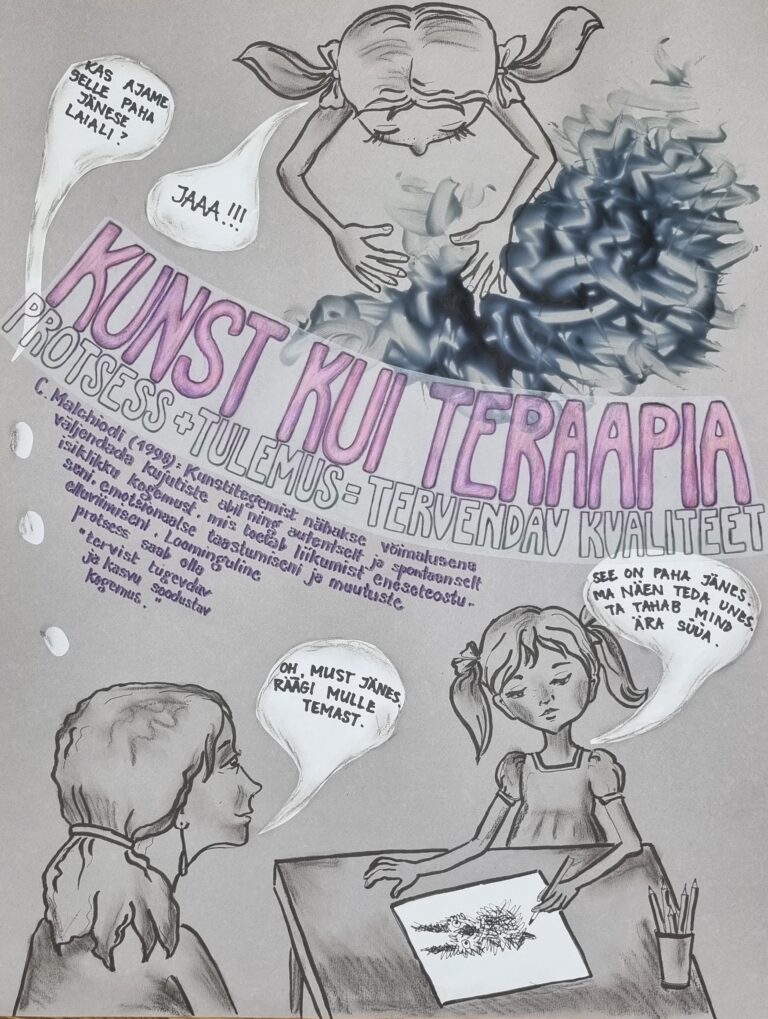 KAS AJAME
SELLE PAHA
JÄNESE
LAIALI?
JAAA!!!
KUNST KUI TERAAPIA
PROTSESS + TULEMUS = TERVENDAV KVALITEET
C. Malchiodi (1998): Kunstitegemist nähakse võimalusena
väljendada kujutiste abil ning autentselt ja spontaanselt
isiklikku kogemust, mis toetab liikumist eneseteostu-
seni, emotsionaalse taastumiseni ja muutuste
elluviimiseni. Loominguline
protsess saab olla
"tervist tugevdav
ja kasvu soodustav
kogemus."
SEE ON PAHA JÄNES.
MA NÄEN TEDA UNES.
TA TAHAB MIND
ÄRA SÜÜA.
OH, MUST JÄNES.
RÄÄGI MULLE
TEMAST.